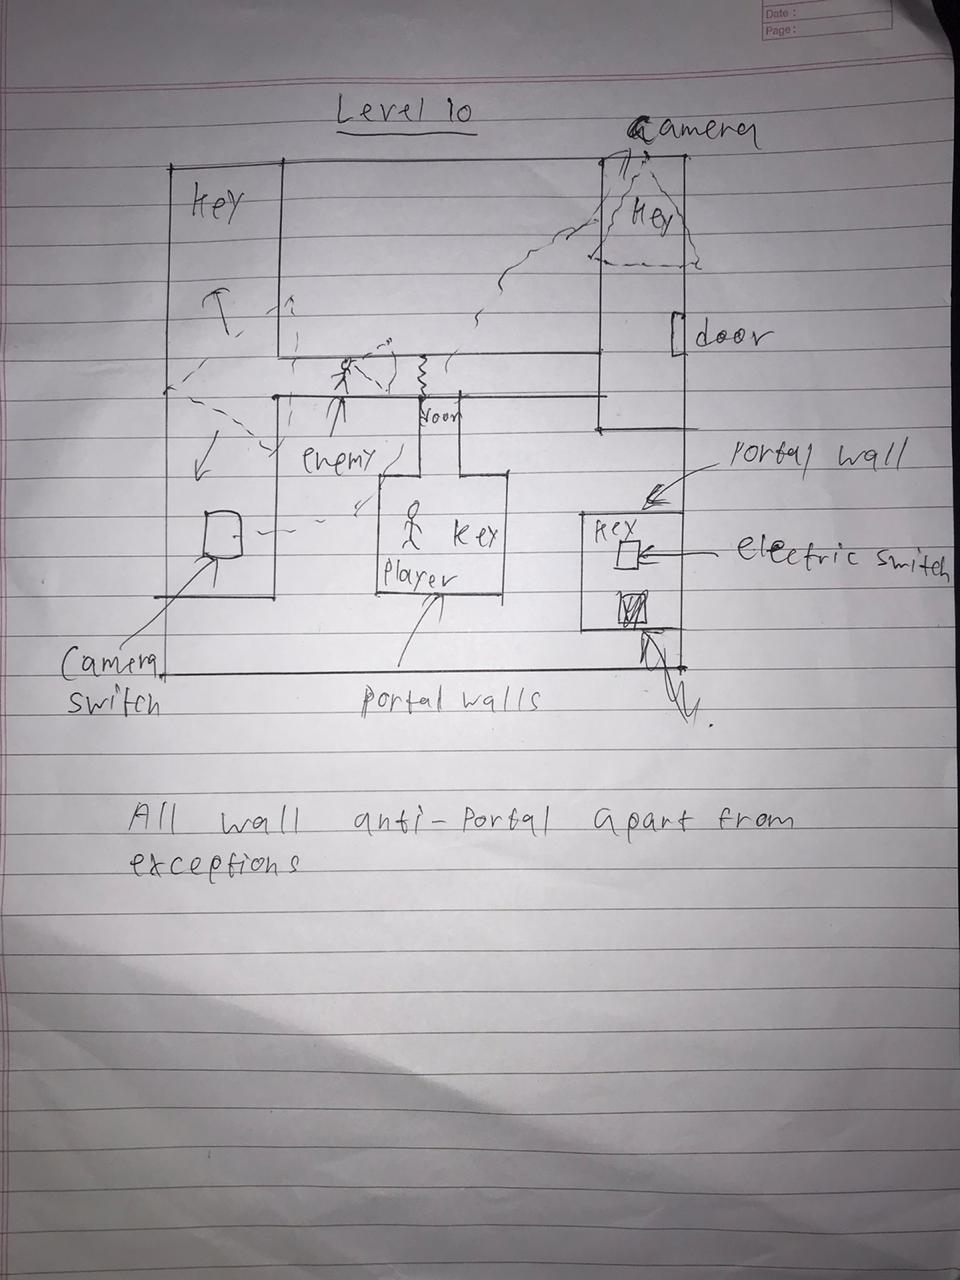 Date :
Page :
Level 10
Camera
Key
Key
door
door
enemy
Portal wall
Key
electric switch
Key
Player
Camera
switch
Portal walls
All wall anti-Portal apart from
exceptions